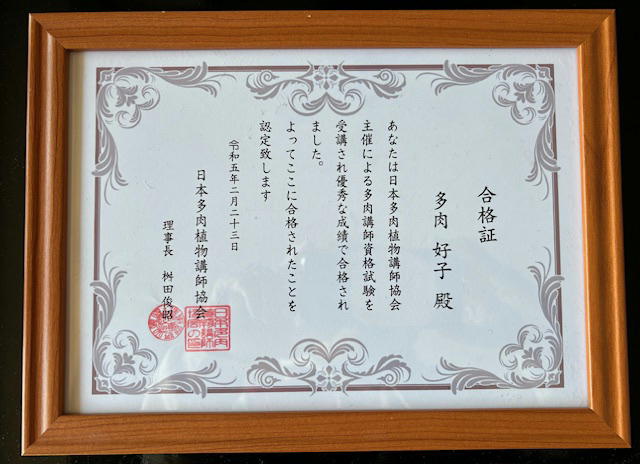 合格証
多肉 好子 殿
あなたは日本多肉植物講師協会
主催による多肉講師資格試験を
受講され優秀な成績で合格され
ました。
よってここに合格されたことを
認定致します
令和五年二月二十三日
日本多肉植物講師協会
理事長 桝田俊昭